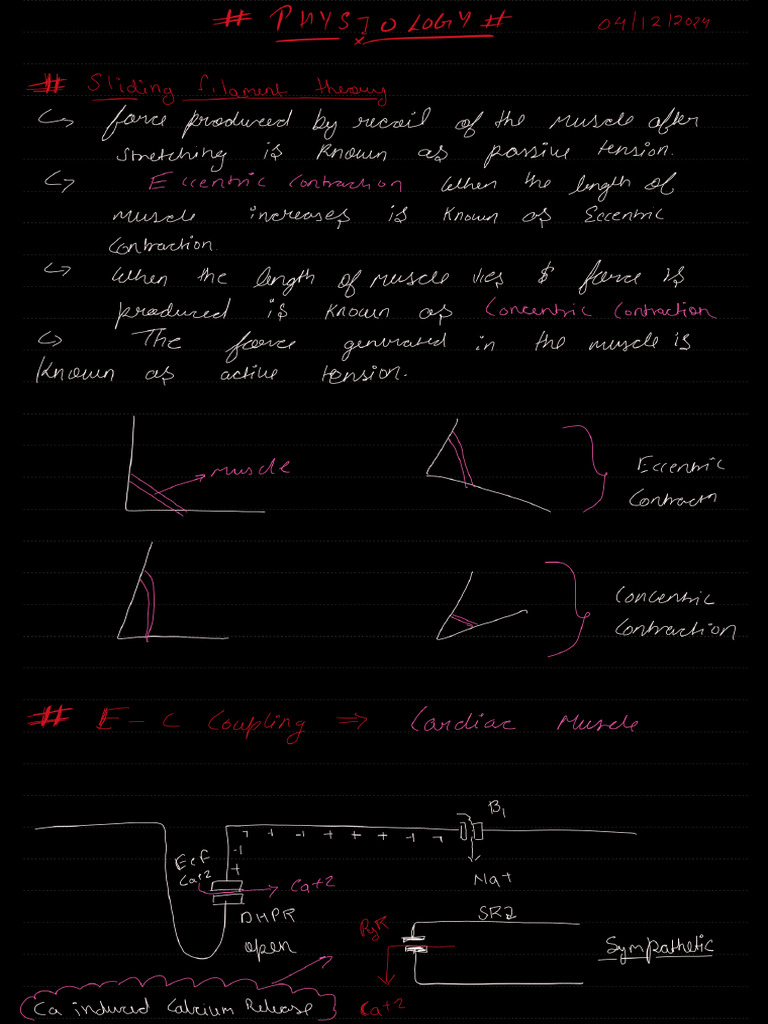 # PHYSIOLOGY #
04/12/2024
# Sliding filament theory
↳ force produced by recoil of the muscle after
stretching is known as passive tension.
↳ Eccentric Contraction when the length of
muscle increases is known as Eccentric
Contraction.
↳ when the length of muscle ↓ses & force is
produced is known as Concentric Contraction
↳ The force generated in the muscle is
known as active tension.
muscle
Eccentric
Contractn
Concentric
Contraction
# E-C Coupling ⇒ Cardiac Muscle
B1
ECF
Ca+2
Ca+2
Na+
DHPR
open
RyR
SR
Sympathetic
Ca induced Calcium Release
Ca+2